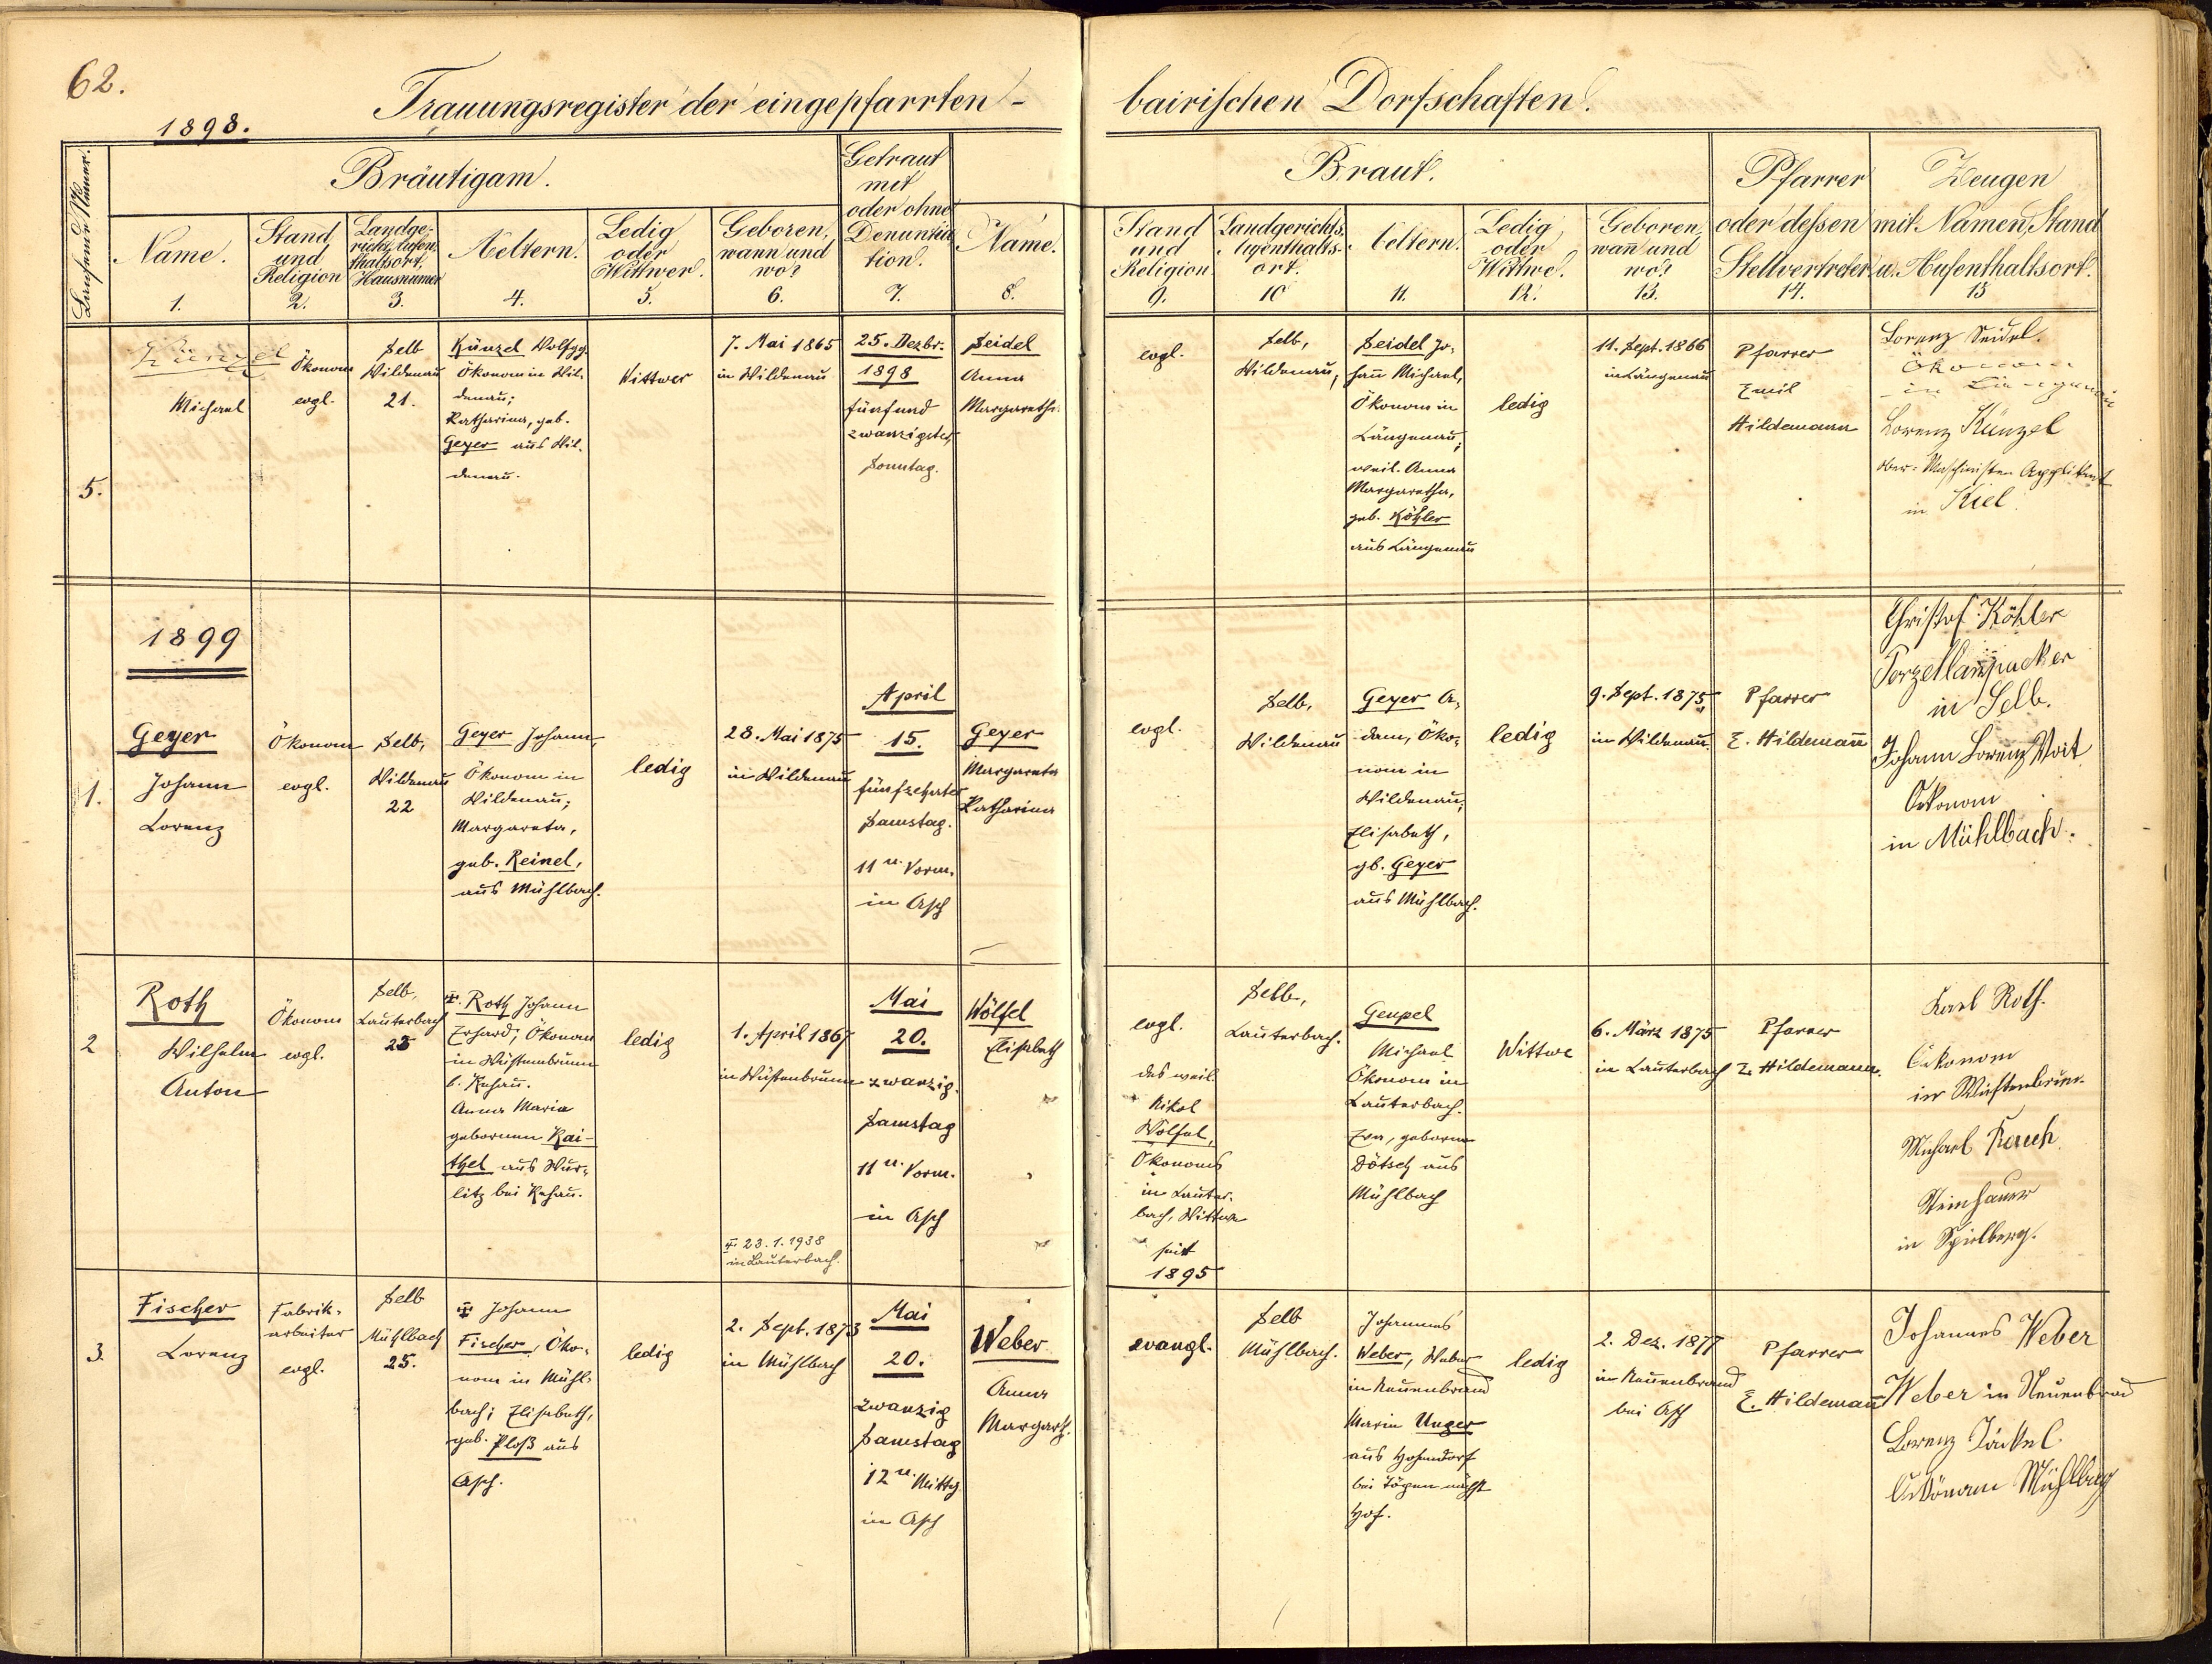 62.
Trauungsregister der eingepfarrten - bairischen Dorfschaften.
1898.
Laufende Numer.
Bräutigam.
Getraut
mit
oder ohne
Denuntia
tion.
7.
Name.
1.
Stand
und
Religion
2.
Landge-
richt, Aufen
thaltsort,
Hausnumer
3.
Aeltern.
4.
Ledig
oder
Wittwer.
5.
Geboren,
wann und
wo?
6.
Name.
8.
Braut.
Stand
und
Religion
9.
Landgerichts
Aufenthalts-
ort.
10
Aeltern.
11.
Ledig
oder
Wittwe.
12.
Geboren
wañ und
wo?
13.
Pfarrer
oder dessen
Stellvertreter
14.
Zeugen
mit Namen, Stand
u. Aufenthaltsort.
15
5.
Künzel
Michael
Ökonom
evgl.
Selb
Wildenau
21.
Künzel Wolfgg.
Ökonom in Wil-
denau;
Katharina, geb.
Geyer aus Wil-
denau.
Wittwer
7. Mai 1865
in Wildenau
25. Dezbr.
1898
fünfund
zwanzigster,
Sonntag.
Seidel
Anna
Margaretha
evgl.
Selb,
Wildenau,
Seidel Jo-
hañ Michael,
Ökonom in
Längenau;
weil. Anna
Margaretha,
geb. Köhler
aus Längenau
ledig
11. Sept. 1866
in Längenau
Pfarrer
Emil
Hildemann
Lorenz Seidel.
Ökonom
in Längenau
Lorenz Künzel
Ober-Maschinisten Applikant
in Kiel.
1899
1.
Geyer
Johann
Lorenz
Ökonom
evgl.
Selb,
Wildenau
22
Geyer Johann,
Ökonom in
Wildenau;
Margareta,
geb. Reinel,
aus Mühlbach.
ledig
28. Mai 1875
in Wildenau
April
15.
fünfzehnter
Samstag.
11 u. Vorm.
in Asch
Geyer
Margareta
Katharina
evgl.
Selb,
Wildenau
Geyer A-
dam, Öko-
nom in
Wildenau;
Elisabeth,
gb. Geyer
aus Mühlbach.
ledig
9. Sept. 1875
in Wildenau.
Pfarrer
E. Hildemañ
Christof Köhler
Porzellanpacker
in Selb.
Johann Lorenz Voit
Ökonom
in Mühlbach.
2
Roth
Wilhelm
Anton
Ökonom
evgl.
Selb,
Lauterbach
23
Roth Johann
Erhard; Ökonom
in Wüstenbrunn
b. Rehau.
Anna Maria
geborenen Rai-
thel aus Wur-
litz bei Rehau.
ledig
1. April 1867
in Wüstenbrunn
23.1.1938
in Lauterbach.
Mai
20.
zwanzig.
Samstag
11 u. Vorm.
in Asch
Wölfel
Elisabeth
evgl.
des weil.
Nikol
Wölfel,
Ökonoms
in Lauter-
bach, Wittwe
seit
1895
Selb,
Lauterbach.
Geupel
Michael
Ökonom in
Lauterbach.
Eva, geborne
Dötsch aus
Mühlbach
Wittwe
6. März 1875
in Lauterbach
Pfarrer
E. Hildemann.
Karl Roth.
Ökonom
in Wüstenbrunn
Michael
Steinhauer
in Spielberg.
3.
Fischer
Lorenz
Fabrik-
arbeiter
evgl.
Selb
Mühlbach
25.
Johann
Fischer, Öko-
nom in Mühl-
bach; Elisabeth,
geb. Ploß aus
Asch.
ledig
2. Sept. 1873
in Mühlbach
Mai
20.
zwanzig
Samstag
12 u. Mittg
in Asch
Weber
Anna
Margarth.
evangl.
Selb
Mühlbach.
Johannes
Weber, Weber
in Neuenbrand
Maria Unger
aus Hohendorf
bei Töpen nächst
Hof.
ledig
2. Dez. 1877
in Neuenbrand
bei Asch
Pfarrer
E. Hildemañ
Johannes Weber
Weber in Neuenbrand
Lorenz Jäckel
Ökonom Mühlbach